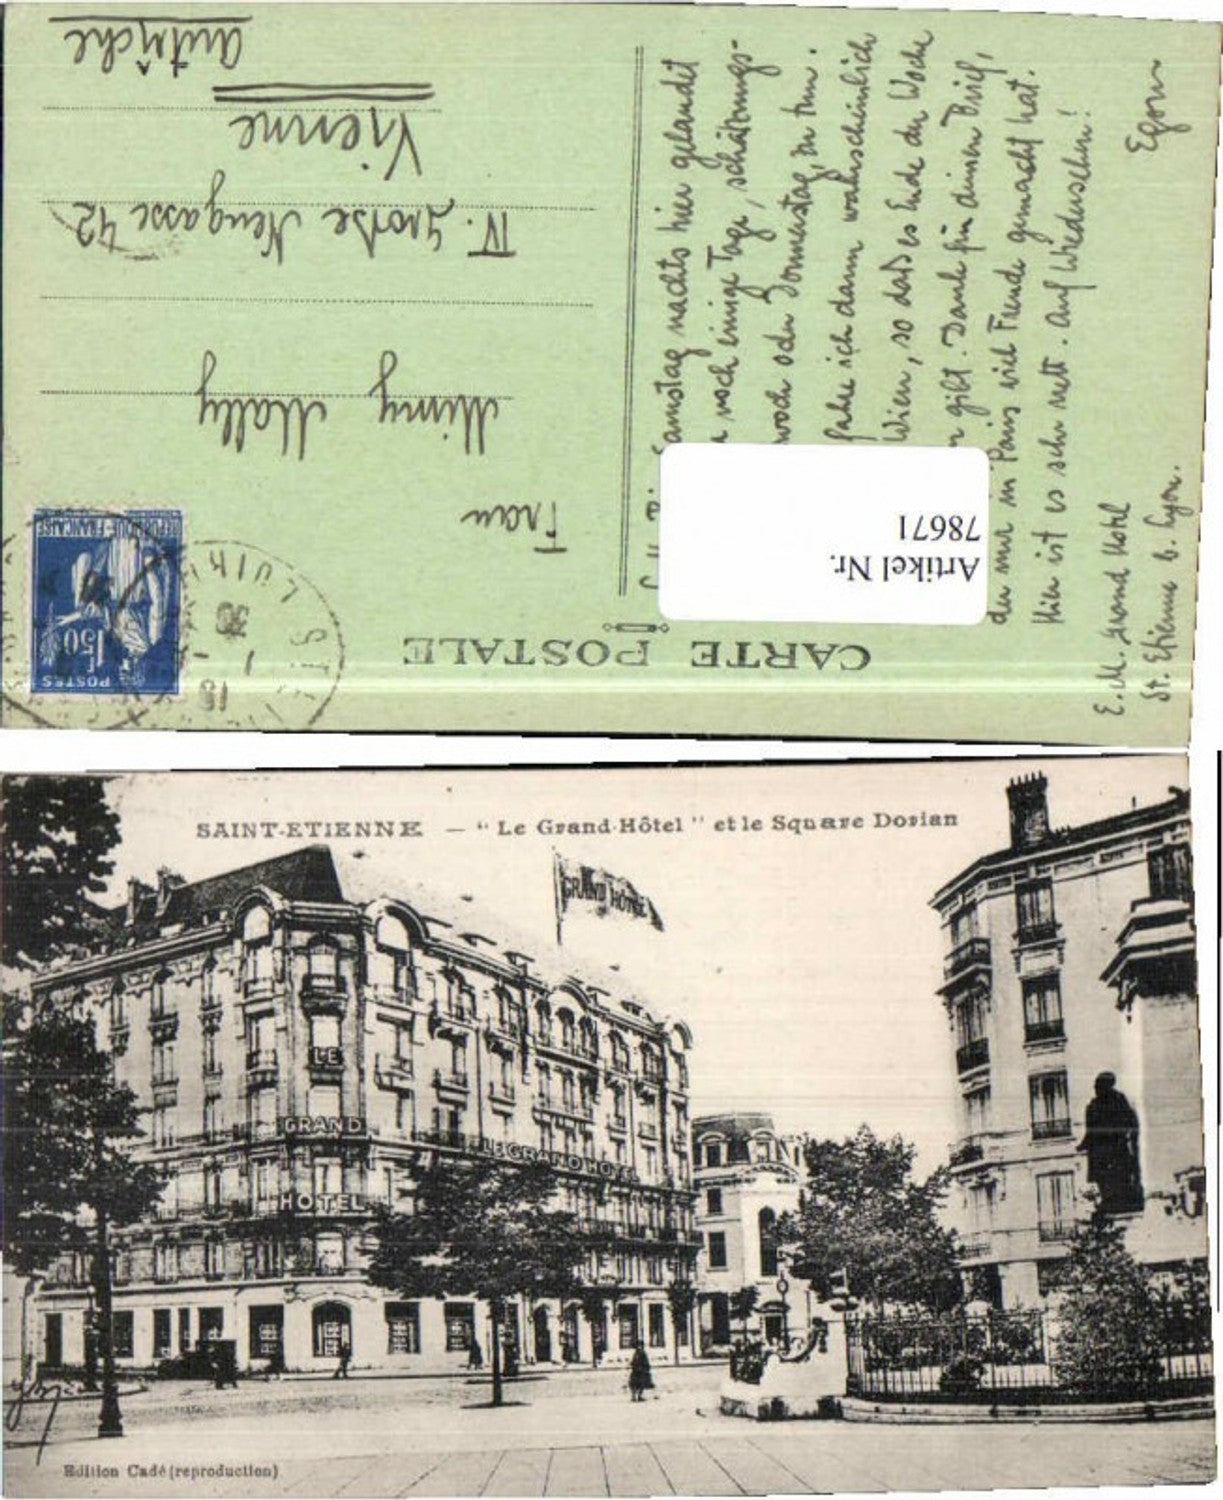 CARTE POSTALE
POSTES
1F50
REPUBLIQUE FRANÇAISE
Artikel Nr.
78671
Frau
Mimy Mally
IV. Grosse Neugasse 42
Vienne
Autriche
Samstag nachts hier gelandet
noch einige Tage, schätzungs-
woch oder Donnerstag, zu tun.
fahre ich dann wahrscheinlich
Wien, so daß es Ende der Woche
gibt. Dank für deinen Brief,
der mir in Paris viel Freude gemacht hat.
Hier ist es sehr nett. Auf Wiedersehn!
Egon
E. M. Grand Hotel
St. Etienne b. Lyon.
SAINT-ETIENNE — "Le Grand-Hôtel" et le Square Dorian
GRAND HOTEL
LE
GRAND
HOTEL
LE GRAND HOTEL
Edition Cadé (reproduction)